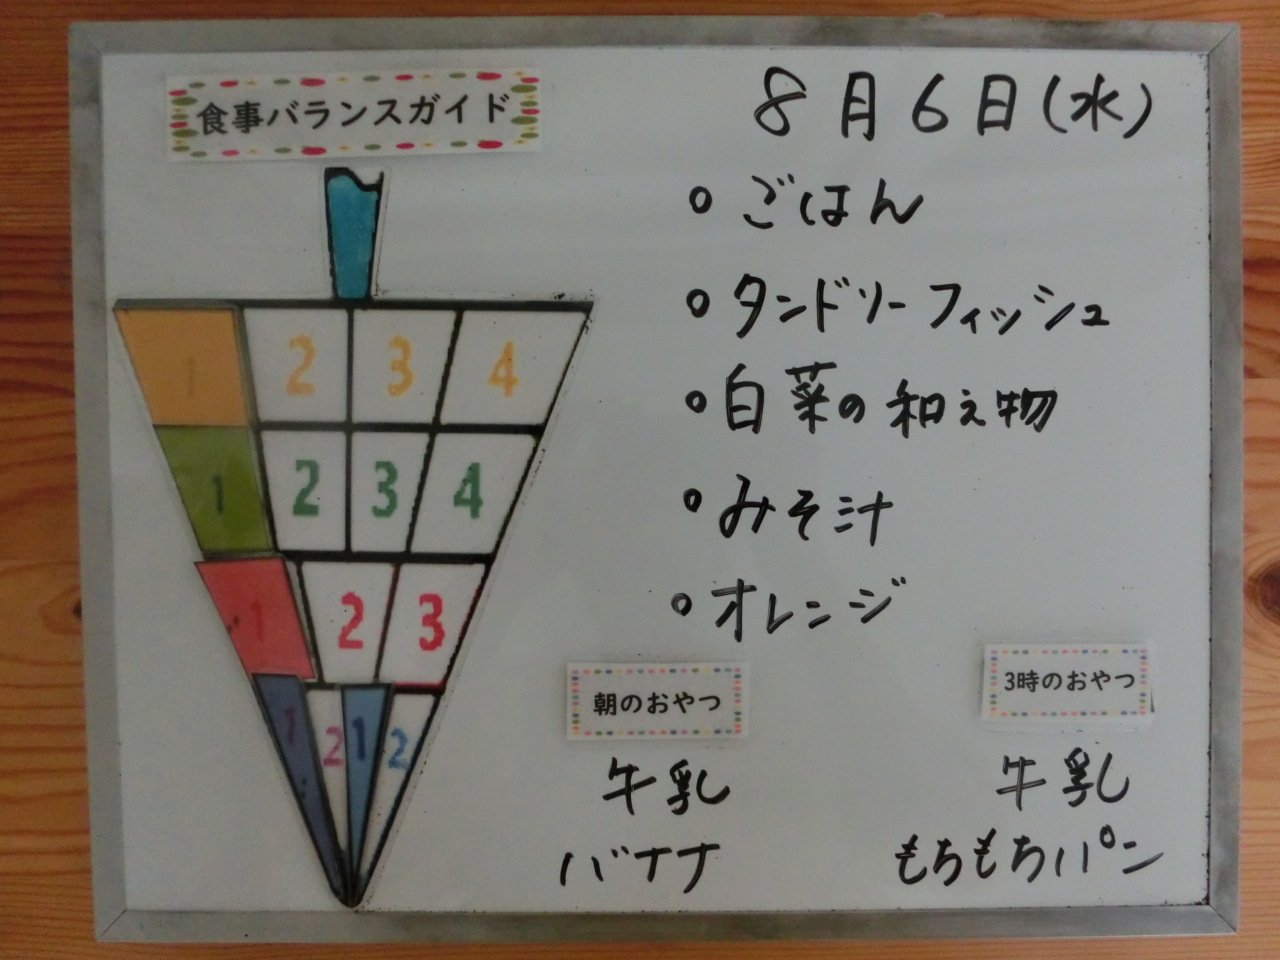 食事バランスガイド
8月6日(水)
○ ごはん
○ タンドリーフィッシュ
○ 白菜の和え物
○ みそ汁
○ オレンジ
1 2 3 4
1 2 3 4
1 2 3
1 2 1 2
朝のおやつ
牛乳
バナナ
3時のおやつ
牛乳
もちもちパン